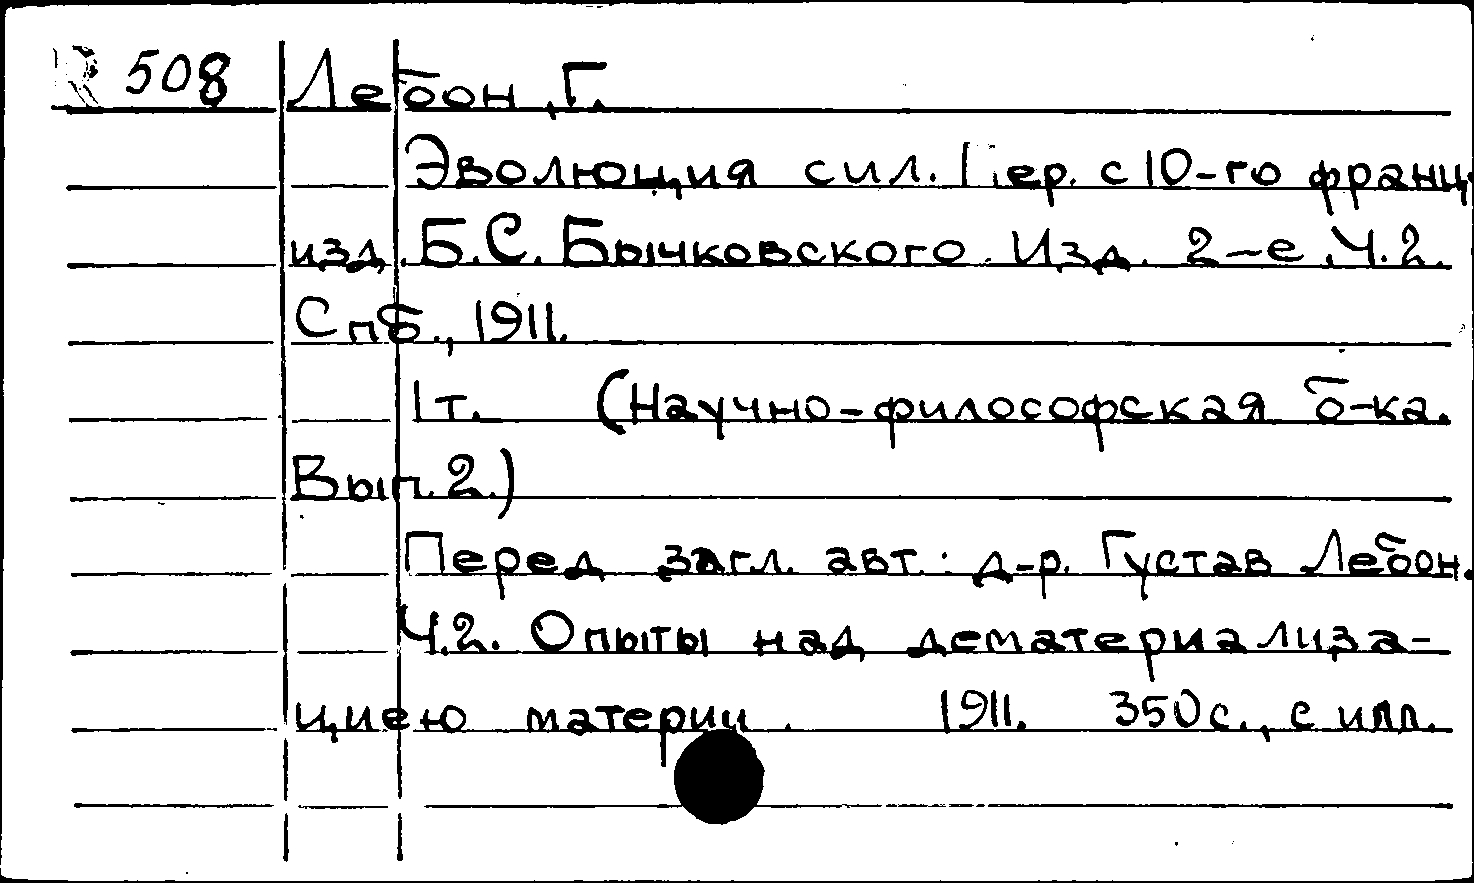 R 508 Лебон, Г.
Эволюция сил. Пер. с 10-го франц.
изд. Б.С. Бычковского. Изд. 2-е. Ч.2.
Спб., 1911.
1 т. (Научно-философская б-ка.
Вып. 2.)
Перед загл. авт.: д-р. Густав Лебон.
Ч.2. Опыты над дематериализа-
циею материи. 1911. 350 с., с илл.